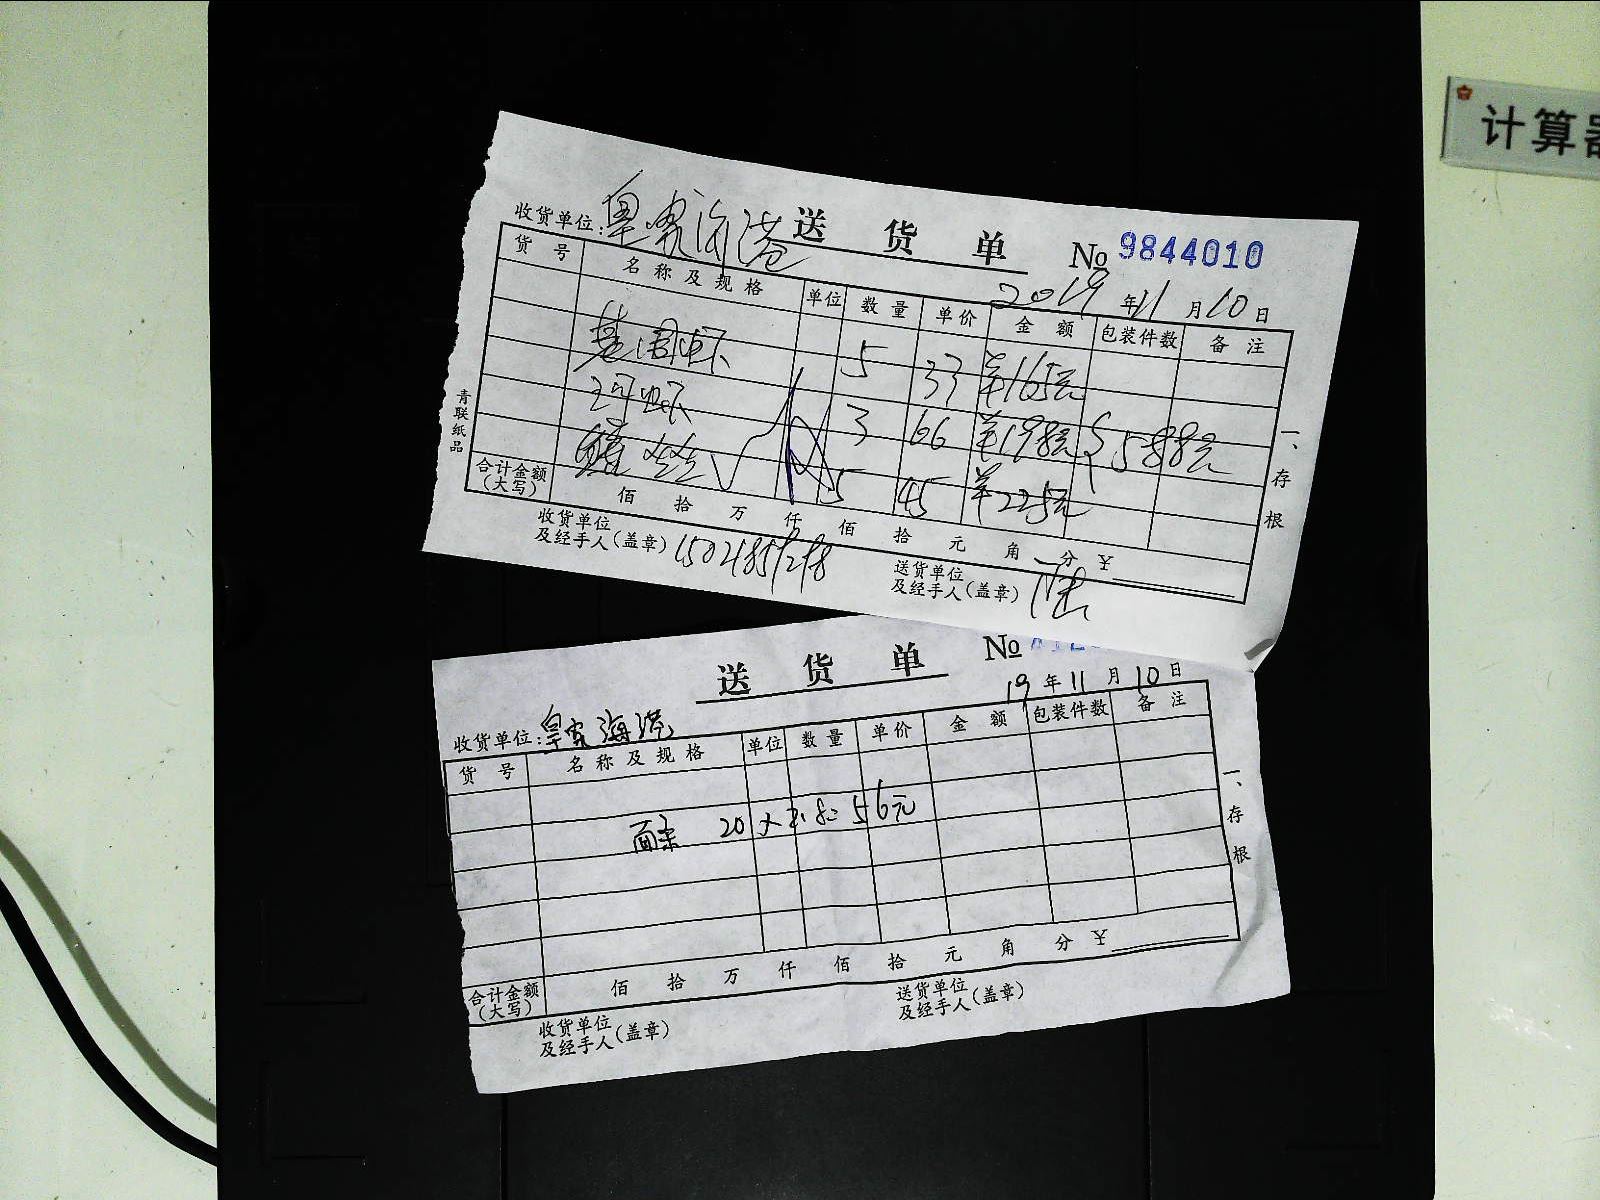 计算器
收货单位:皇冠海港 送货单 № 9844010
2019年11月10日
货号 名称及规格 单位 数量 单价 金额 包装件数 备注
基围虾 5 33 羊165元
3 66 羊198元 588元
鳝丝 5 45 羊225元
合计金额(大写) 佰 拾 万 仟 佰 拾 元 角 分 ¥
收货单位及经手人(盖章)
送货单位及经手人(盖章) 陆
青联纸品
一、存根
送货单 №
19年11月10日
收货单位:
货号 名称及规格 单位 数量 单价 金额 包装件数 备注
20 56元
合计金额(大写) 佰 拾 万 仟 佰 拾 元 角 分 ¥
收货单位及经手人(盖章)
送货单位及经手人(盖章)
一、存根